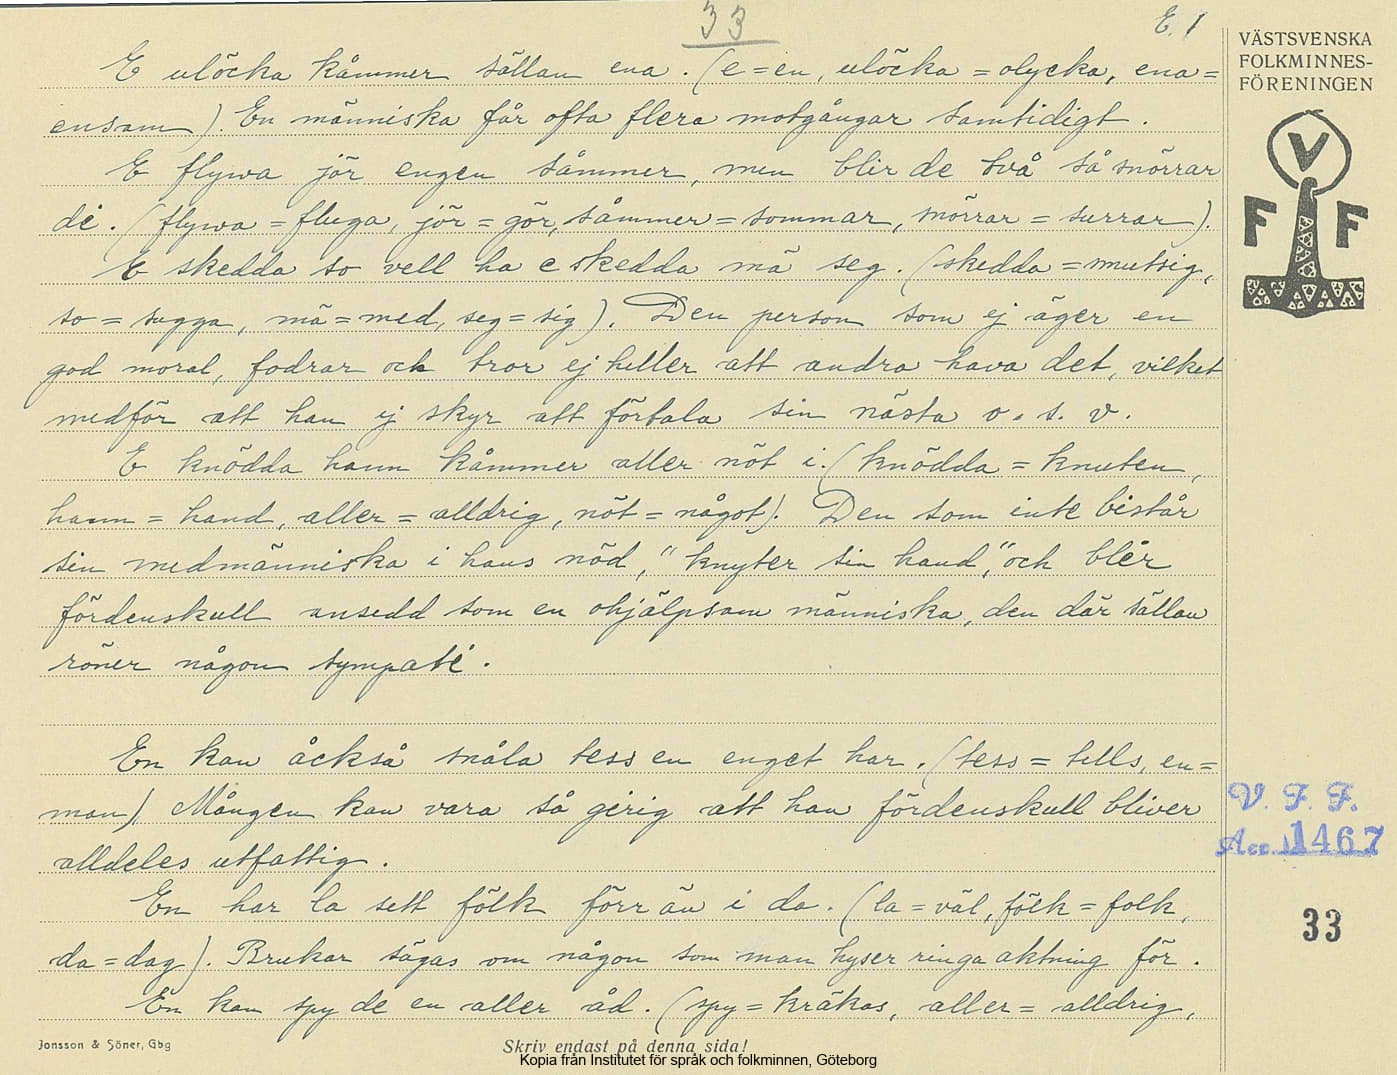 33
E. 1
E ulöcka kåmmer sällan ena. (e = en, ulöcka = olycka, ena =
ensam). En människa får ofta flera motgångar samtidigt.
E flywa jör engen såmmer, men blir de två så snörrar
de. (flywa = fluga, jör = gör, såmmer = sommar, snörrar = surrar).
E skedda so vell ha e skedda mä seg. (skedda = smutsig,
so = sugga, mä = med, seg = sig). Den person som ej äger en
god moral, fodrar och tror ej heller att andra hava det, vilket
medför att han ej skyr att förtala sin nästa o. s. v.
E knödda hann kåmmer aller nöt i. (knödda = knuten,
hann = hand, aller = alldrig, nöt = något). Den som inte bistår
sin medmänniska i hans nöd, "knyter sin hand", och blir
fördenskull ansedd som en ohjälpsam människa, den där sällan
röner någon sympati.
En kan åckså snåla tess en enget har. (tess = tills, en =
man) Mången kan vara så girig att han fördenskull bliver
alldeles utfattig.
En har la sett fölk förr än i da. (la = väl, fölk = folk,
da = dag). Brukar sägas om någon som man hyser ringa aktning för.
En kan spy de en aller åd. (spy = kräkas, aller = alldrig,
VÄSTSVENSKA
FOLKMINNES-
FÖRENINGEN
V
F F
V. F. F.
Acc. 1467
33
Jonsson & Söner, Gbg
Skriv endast på denna sida!
Kopia från Institutet för språk och folkminnen, Göteborg